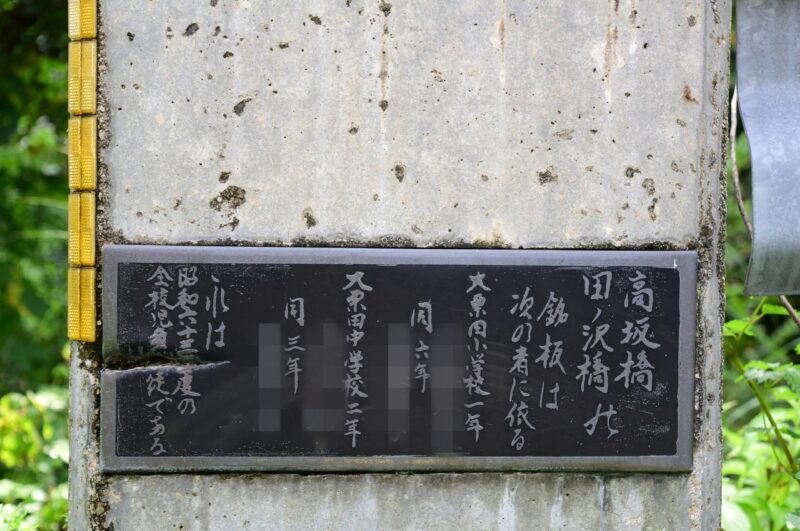 高坂橋
田ノ沢橋の
銘板は
次の者に依る
大栗田小学校一年
同六年
大栗田中学校二年
同三年
これは
昭和六十三年度の
全校児童生徒である